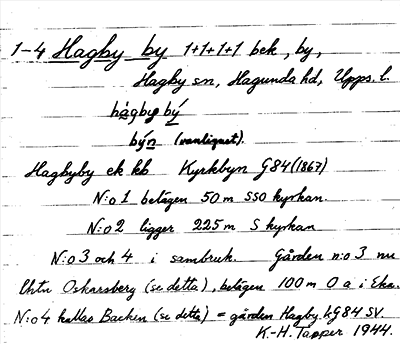 1-4 Hagby by 1+1+1+1 bek, by,
Hagby sn, Hagunda hd, Upps. l.
hagby bý
býn (vanligast).
Hagbyby ek kb Kyrkbyn G84 (1867)
N:o 1 belägen 50 m SSO kyrkan.
N:o 2 ligger 225 m S kyrkan
N:o 3 och 4 i sambruk. Gården n:o 3 nu
Oskarsberg (se detta), belägen 100 m O a i Eka.
N:o 4 kallas Backen (se detta) = gården Hagby. k G84 SV.
K.-H. Tapper 1944.